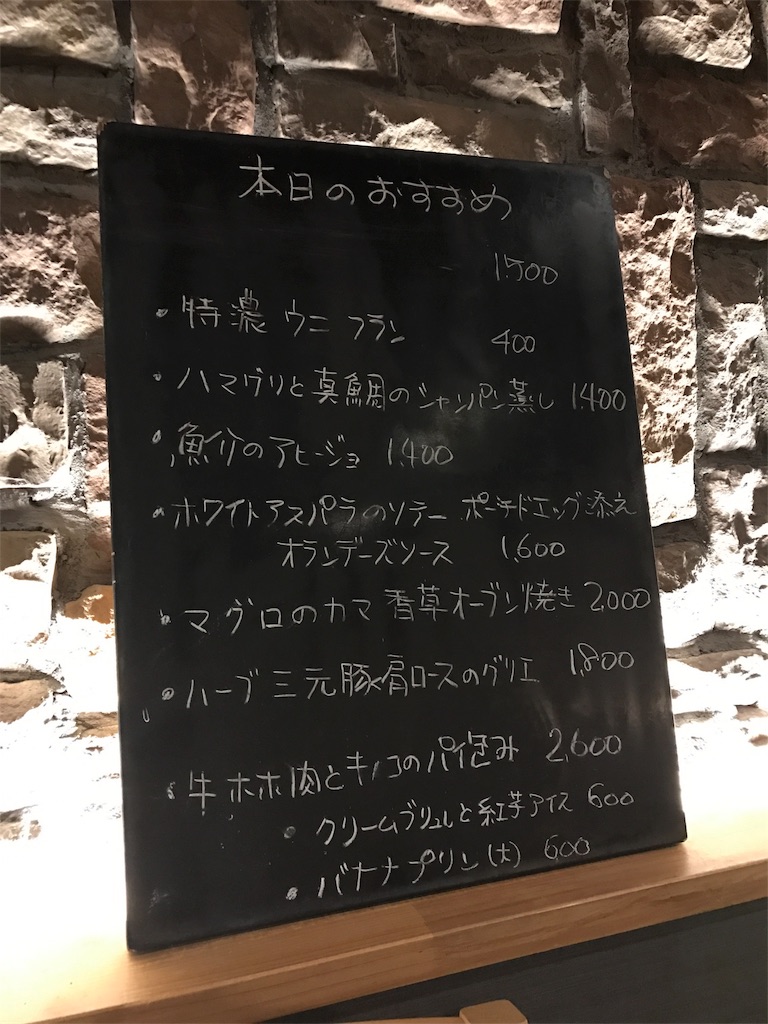 本日のおすすめ
1,500
・特濃 ウニ フラン 400
・ハマグリと真鯛のシャンパン蒸し 1,400
・魚介のアヒージョ 1,400
・ホワイトアスパラのソテー ポーチドエッグ添え
オランデーズソース 1,600
・マグロのカマ 香草オーブン焼き 2,000
・ハーブ三元豚肩ロースのグリエ 1,800
・牛ホホ肉とキノコのパイ包み 2,600
・クリームブリュレと紅芋アイス 600
・バナナプリン(大) 600